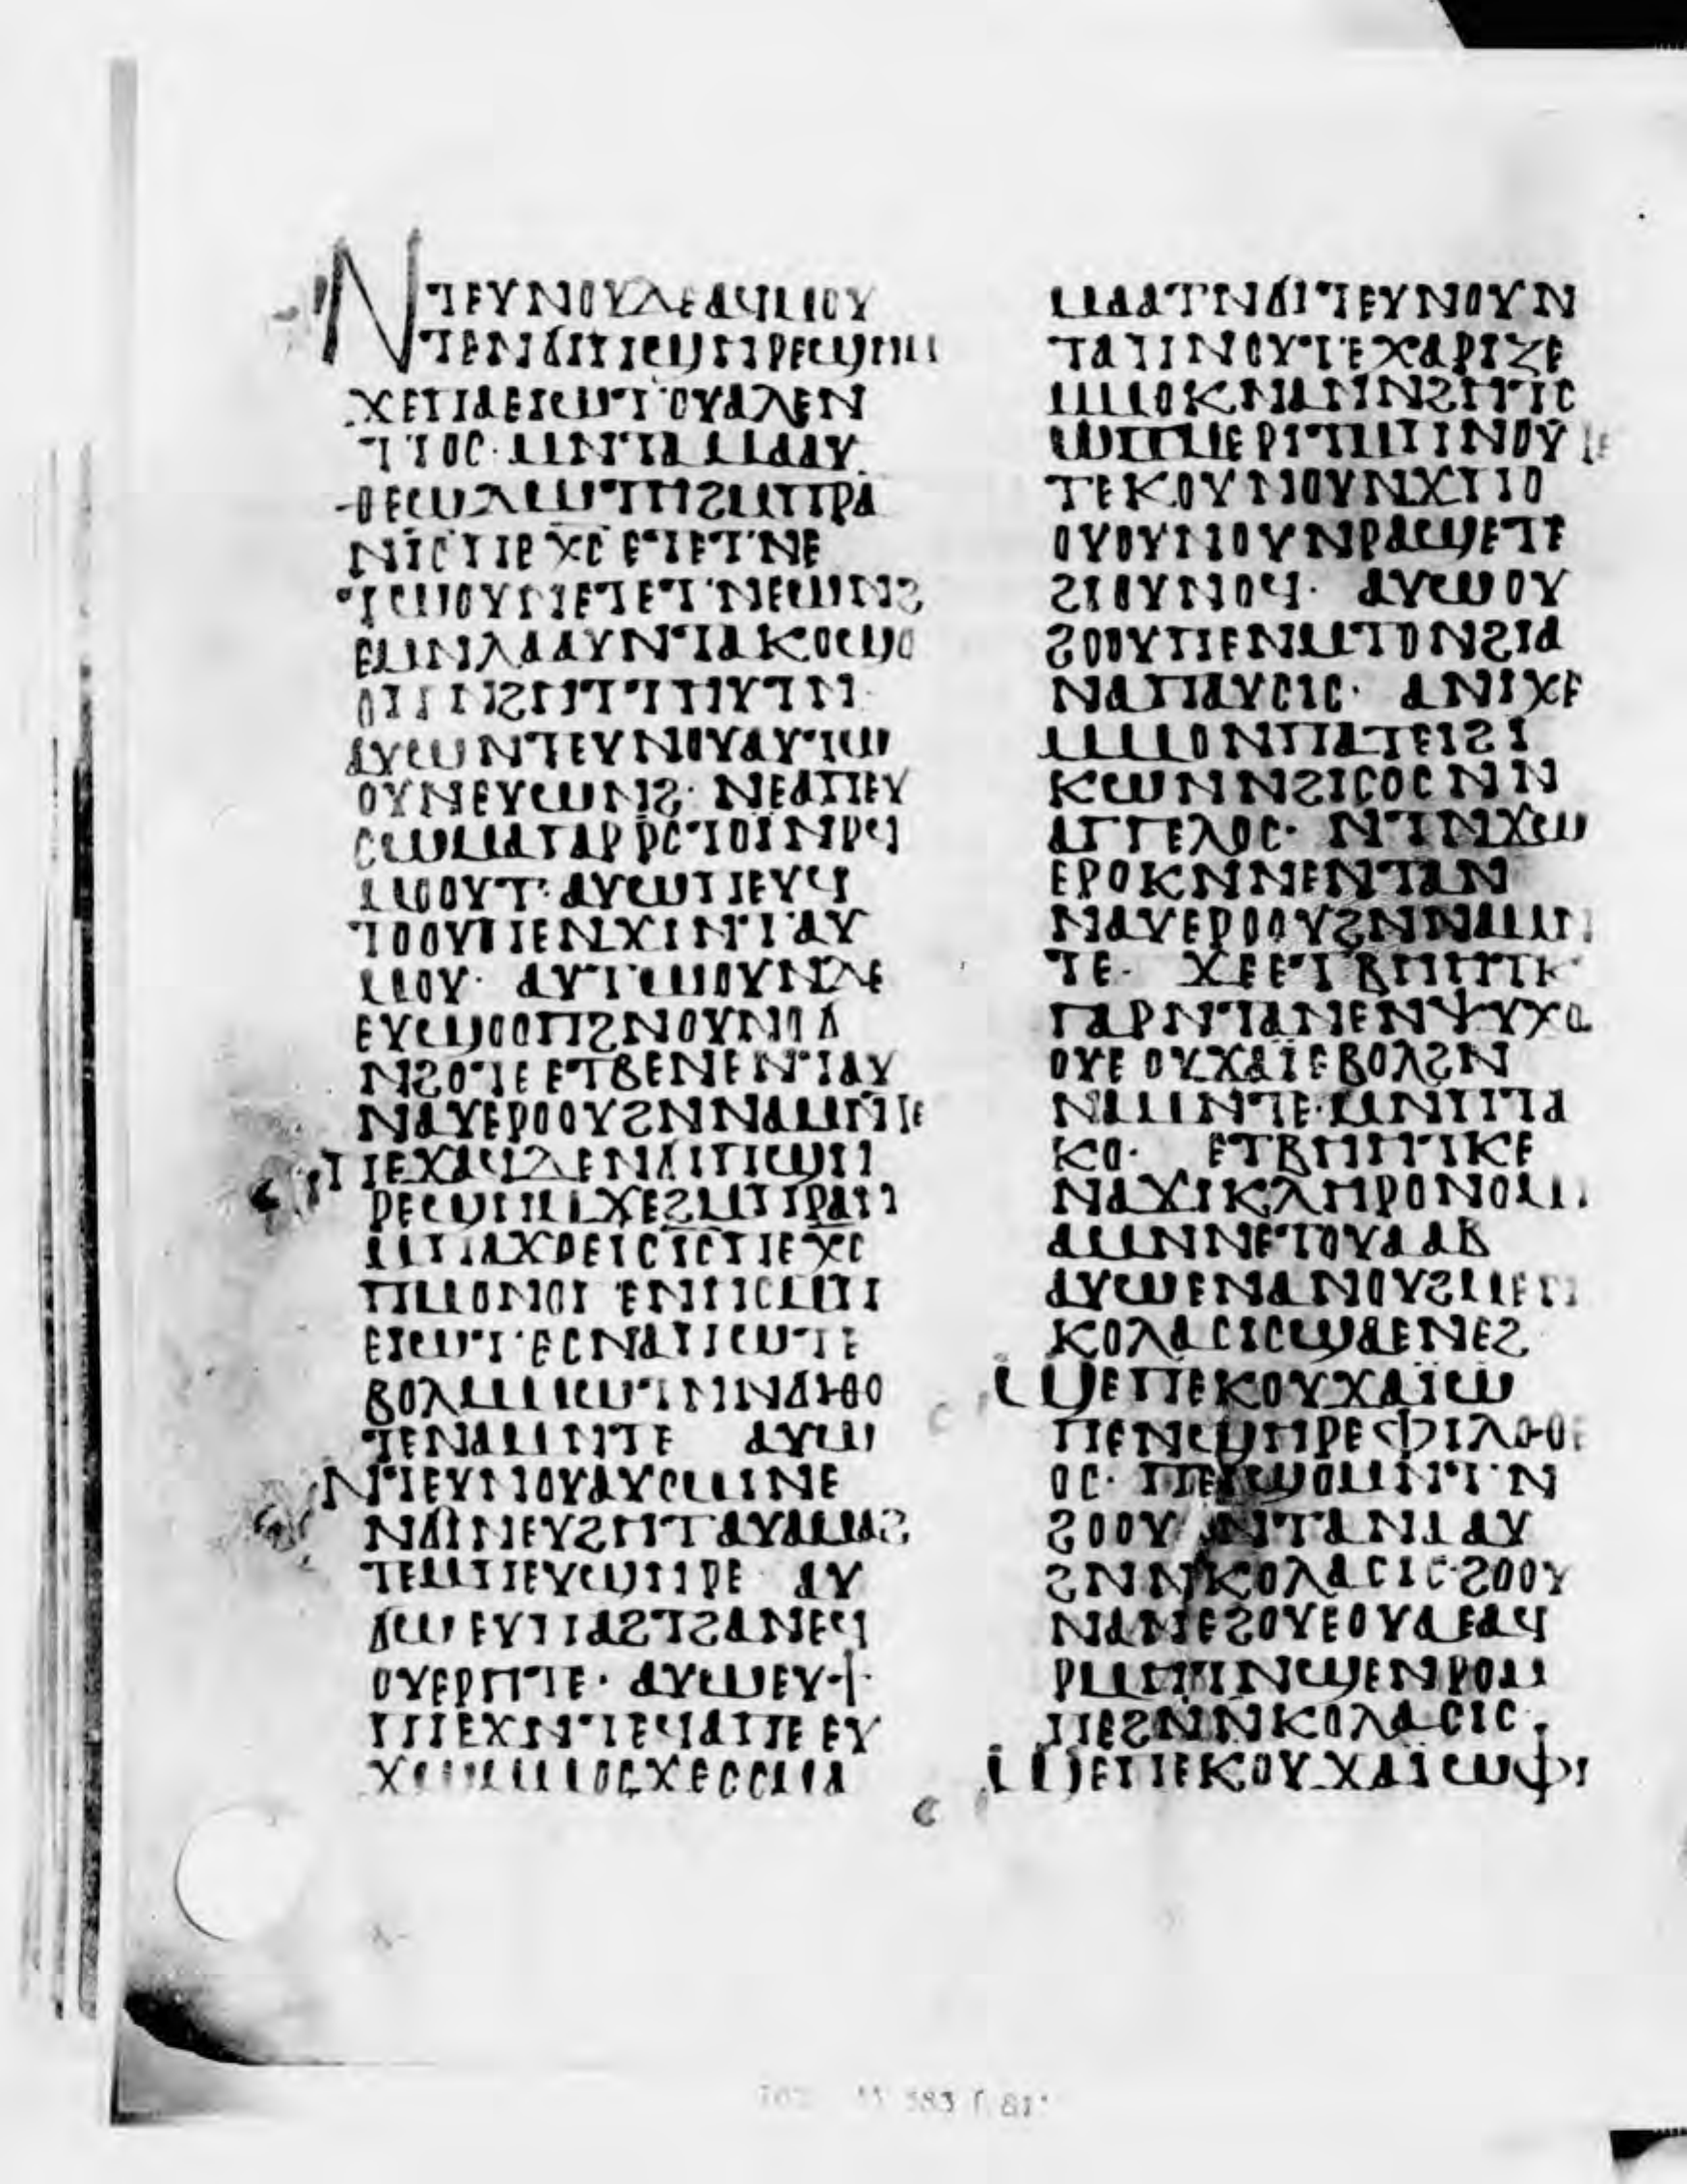 ⲚⲦⲈⲨⲚⲞⲨⲆⲈⲀϤⲘⲞⲨ
ⲦⲈⲚϬⲒⲠⲔⲈϢⲎⲢⲈϢⲎⲘ
ϪⲈⲠⲀⲈⲒⲰⲦ ⲞⲨⲀⲖⲈⲚ
ⲦⲒⲞⲤ· ⲘⲚⲦⲀⲘⲀⲀⲨ
ⲐⲈⲰⲆⲰⲦⲎ ϨⲘⲠⲢⲀ
ⲚⲒⲤ ⲠⲈⲬⲤ ⲈⲦⲈⲦⲚⲈ
ⲦⲰⲞⲨⲚ ⲈⲦⲈⲦⲚⲈⲰⲚϨ
ⲈⲘⲚⲖⲀⲀⲨⲚⲦⲀⲔⲞϢⲞ
ⲞⲠ ⲚϨⲎⲦⲦⲎⲨⲦⲚ·
ⲀⲨⲰⲚⲦⲈⲨⲚⲞⲨⲀⲨⲦⲰ
ⲞⲨⲚⲈⲨⲰⲚϨ· ⲚⲈⲀⲠⲈⲨ
ⲤⲰⲘⲀⲄⲀⲢ ⲢⲤⲦⲞⲒ ⲚⲢϤ
ⲘⲞⲞⲨⲦ· ⲀⲨⲰⲠⲈⲨϤ
ⲦⲞⲞⲨⲠⲈⲚϪⲒⲚⲦⲀⲨ
ⲘⲞⲨ· ⲀⲨⲦⲰⲞⲨⲚⲆⲈ
ⲈⲨϢⲞⲞⲠϨⲚⲞⲨⲚⲞϬ
ⲚϨⲞⲦⲈ ⲈⲦⲂⲈⲚⲈⲚⲦⲀⲨ
ⲚⲀⲨⲈⲢⲞⲞⲨϨⲚⲚⲀⲘⲚⲦⲈ
ⲠⲈϪⲀϤⲆⲈ ⲚϬⲒⲠϢⲎ
ⲢⲈϢⲎⲘ ϪⲈϨⲘⲠⲢⲀⲚ
ⲘⲠⲀϪⲞⲈⲒⲤ ⲒⲤ ⲠⲈⲬⲤ
ⲠⲘⲞⲚⲞⲄⲈⲚⲎⲤ ⲘⲠ
ⲈⲒⲰⲦ· ⲈⲤⲚⲀⲠⲰⲦ Ⲉ
ⲂⲞⲖ ⲘⲘⲰⲦⲚ ⲚϬⲒⲐⲞ
ⲦⲈ ⲚⲀⲘⲚⲦⲈ ⲀⲨⲰ
ⲚⲦⲈⲨⲚⲞⲨⲀⲨⲤⲘⲒⲚⲈ
ⲚϬⲒⲚⲈⲨϨⲎⲦ ⲀⲨⲀⲘⲀϨ
ⲦⲈⲘⲠⲈⲨϢⲎⲢⲈ ⲀⲨ
ϬⲰ ⲈⲨⲠⲀϨⲦ ϨⲀⲚⲈϤ
ⲞⲨⲈⲢⲎⲦⲈ· ⲀⲨⲰⲈⲨϮ
ⲠⲒ ⲈϪⲚⲦⲈϤⲀⲠⲈ ⲈⲨ
ϪⲰⲘⲘⲞⲤ ϪⲈ ⲤⲘⲀ
ⲘⲀⲀⲦ ⲚϬⲒⲦⲈⲨⲚⲞⲨ Ⲛ
ⲦⲀⲠⲚⲞⲨⲦⲈⲬⲀⲢⲒⲌⲈ
ⲘⲘⲞⲔ ⲚⲀⲚ ⲚϨⲎⲦⲤ
ⲰⲠⲘⲈⲢⲒⲦⲘⲠⲚⲞⲨⲦⲈ
ⲦⲈⲔⲞⲨⲚⲞⲨⲚϪⲠⲞ
ⲞⲨⲞⲨⲚⲞⲨⲚⲢⲀϢⲈⲦⲈ
ϨⲒⲞⲨⲚⲞϤ· ⲀⲨⲰⲞⲨ
ϨⲞⲞⲨⲠⲈⲚⲘⲦⲞⲚϨⲒⲀ
ⲚⲀⲠⲀⲨⲤⲒⲤ· ⲀⲚⲒϪⲈ
ⲘⲘⲞⲚⲠⲀⲦⲈⲒϨⲒ
ⲔⲰⲚⲚϨⲒⲤⲞⲤⲚⲚ
ⲀⲅⲅⲈⲖⲞⲤ· ⲚⲦⲚϪⲰ
ⲈⲢⲞⲔⲚⲚⲈⲚⲦⲀⲚ
ⲚⲀⲨⲈⲢⲞⲞⲨϨⲚⲚⲀⲘⲚ
ⲦⲈ· ϪⲈⲈⲦⲂⲎⲎⲦⲔ
ⲄⲀⲢⲚⲦⲀⲚⲈⲚⲮⲨⲬⲞ
ⲞⲨⲈ ⲞⲨϪⲀⲒ ⲈⲂⲞⲖϨⲚ
ⲚⲀⲘⲚⲦⲈ· ⲘⲚⲠⲦⲀ
ⲔⲞ· ⲈⲦⲂⲎⲎⲦⲔⲈ
ⲚⲀϪⲒⲔⲖⲎⲢⲞⲚⲞⲘ
ⲀⲘⲚⲚⲈⲦⲞⲨⲀⲀⲂ
ⲀⲨⲰⲈⲚⲀⲚⲞⲨϨⲘⲈⲚ
ⲔⲞⲖⲀⲤⲒⲤϢⲀⲈⲚⲈϨ
ϢⲈⲠⲈⲔⲞⲨϪⲀⲒⲰ
ⲠⲈⲚϢⲎⲢⲈⲪⲒⲖⲞⲐⲈ
ⲞⲤ· ⲠⲈⲔϢⲞⲘⲚⲦ Ⲛ
ϨⲞⲞⲨ ⲚⲦⲀⲚⲀⲀⲨ
ϨⲚⲚⲔⲞⲖⲀⲤⲒⲤ· ϨⲞⲞⲨ
ⲚⲀⲚⲈϨⲞⲨⲈⲞⲨⲀ ⲈⲀϤ
ⲢⲘⲎⲦⲚϢⲈⲚⲢⲞⲘ
ⲠⲈϨⲚⲚⲔⲞⲖⲀⲤⲒⲤ
ϢⲈⲠⲈⲔⲞⲨϪⲀⲒⲰⲪⲒ